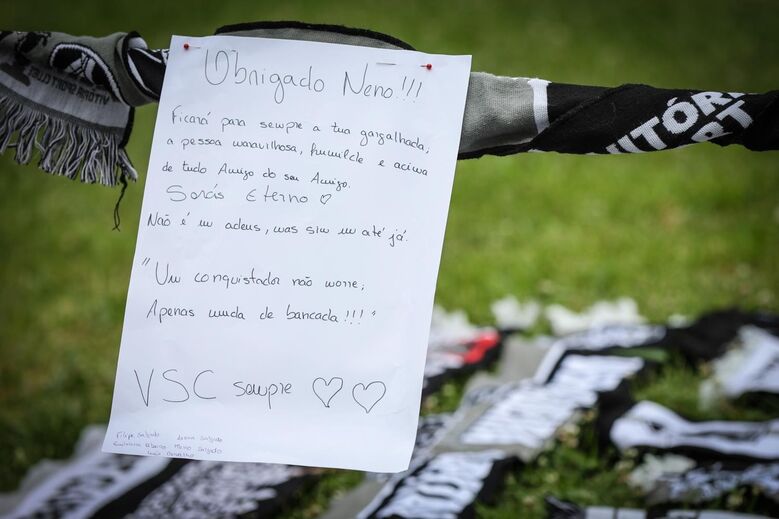 Obrigado Neno!!!
Ficará para sempre a tua gargalhada,
a pessoa maravilhosa, humilde e acima
de tudo Amigo do seu Amigo.
Serás Eterno ♡
Não é um adeus, mas sim um até já.
"Um conquistador não morre;
Apenas muda de bancada!!!"
VSC sempre ♡ ♡
Filipe Salgado Joana Salgado
Salgado
VITÓRI